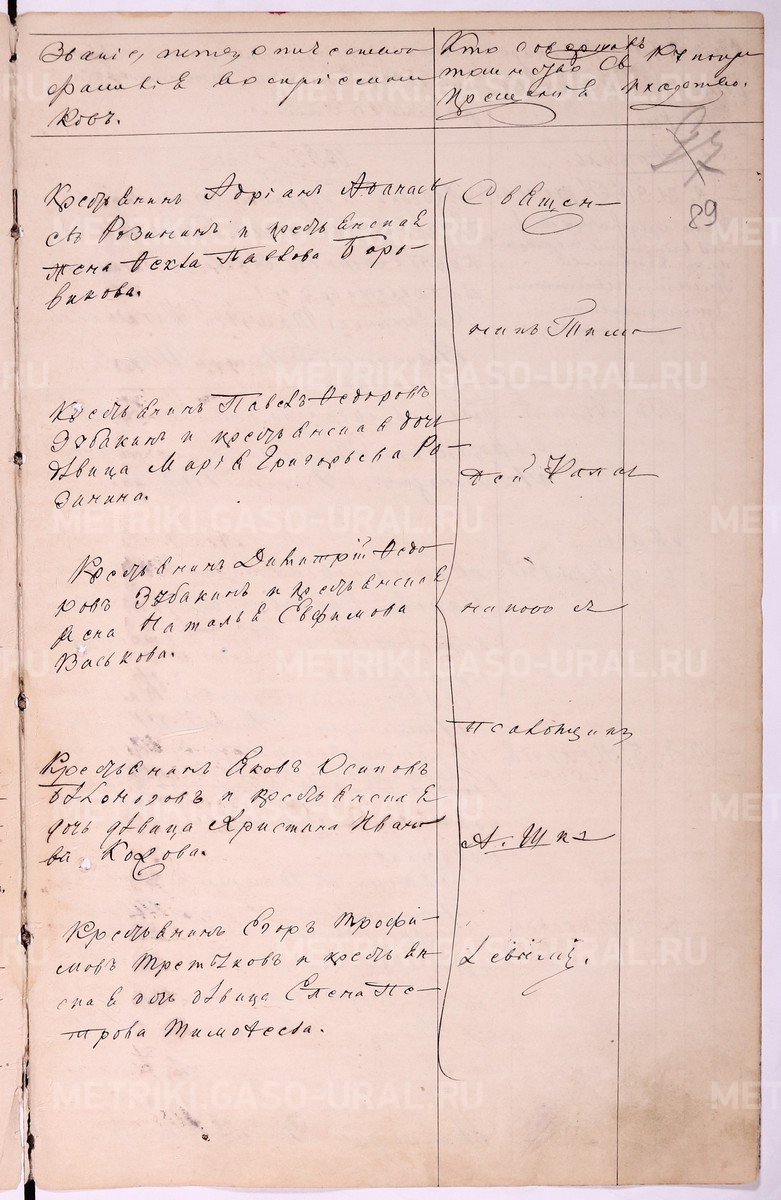 Званіе, имя, отчество и
фамилія воспріемни
ковъ.
Кто совершалъ
таинство Св
Крещенія
Рукопри
кладство.
97
89
Крестьянинъ Адріанъ Аѳанась
евъ Разининъ и крестьянская
жена Ѳекла Павлова Боро-
викова.
Крестьянинъ Павелъ Ѳедоровъ
Зыбакинъ и крестьянская дочь
дѣвица Марія Григорьева Ра-
зинина.
Крестьянинъ Димитрій Ѳедо
ровъ Зыбакинъ и крестьянская
жена Наталья Евфимова
Васькова.
Крестьянинъ Яковъ Осиповъ
Бѣломоровъ и крестьянская
дочь дѣвица Христина Ивано
ва Козлова.
Крестьянинъ Егоръ Трофи-
мовъ Третьяковъ и крестьян
ская дочь дѣвица Елена Пе-
трова Тимоѳеева.
Священ-
никъ Тимо
ѳей
псаломщикъ
METRIKI.GASO-URAL.RU